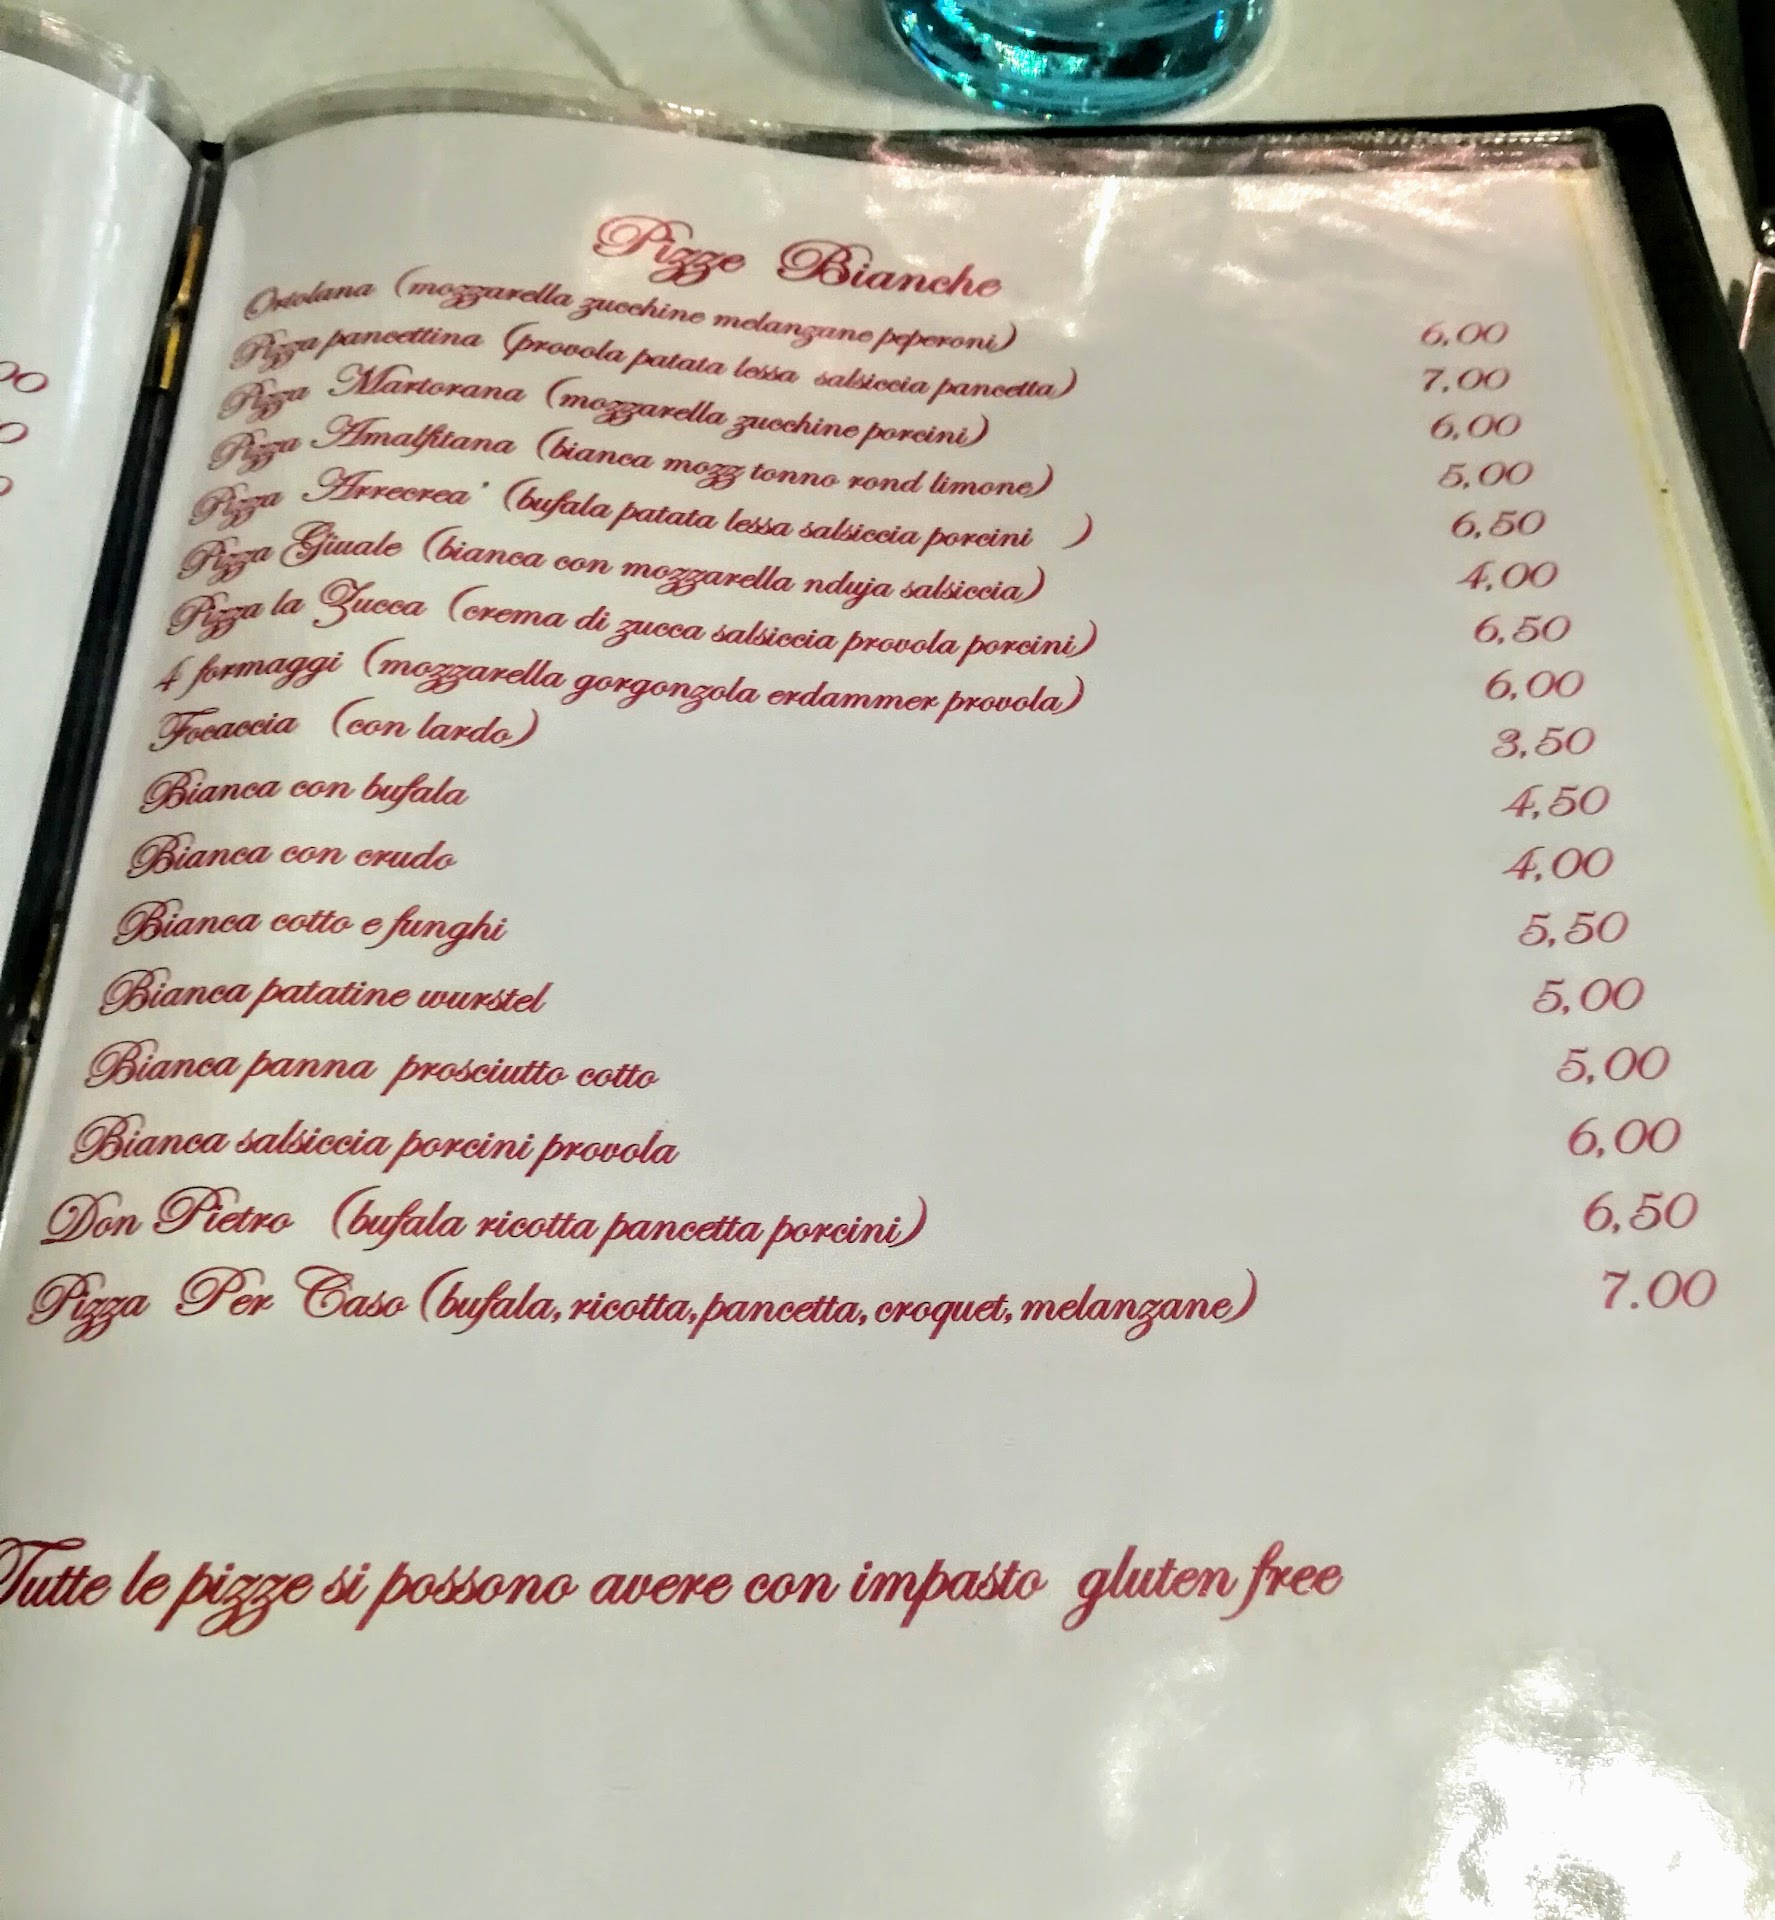 Pizze Bianche
Ortolana (mozzarella zucchine melanzane peperoni) 6,00
Pizza pancettina (provola patata lessa salsiccia pancetta) 7,00
Pizza Martorana (mozzarella zucchine porcini) 6,00
Pizza Amalfitana (bianca mozz tonno rond limone) 5,00
Pizza Arrecrea' (bufala patata lessa salsiccia porcini ) 6,50
Pizza Giuale (bianca con mozzarella nduja salsiccia) 4,00
Pizza la Zucca (crema di zucca salsiccia provola porcini) 6,50
4 formaggi (mozzarella gorgonzola erdammer provola) 6,00
Focaccia (con lardo) 3,50
Bianca con bufala 4,50
Bianca con crudo 4,00
Bianca cotto e funghi 5,50
Bianca patatine wurstel 5,00
Bianca panna prosciutto cotto 5,00
Bianca salsiccia porcini provola 6,00
Don Pietro (bufala ricotta pancetta porcini) 6,50
Pizza Per Caso (bufala, ricotta, pancetta, croquet, melanzane) 7.00
Tutte le pizze si possono avere con impasto gluten free